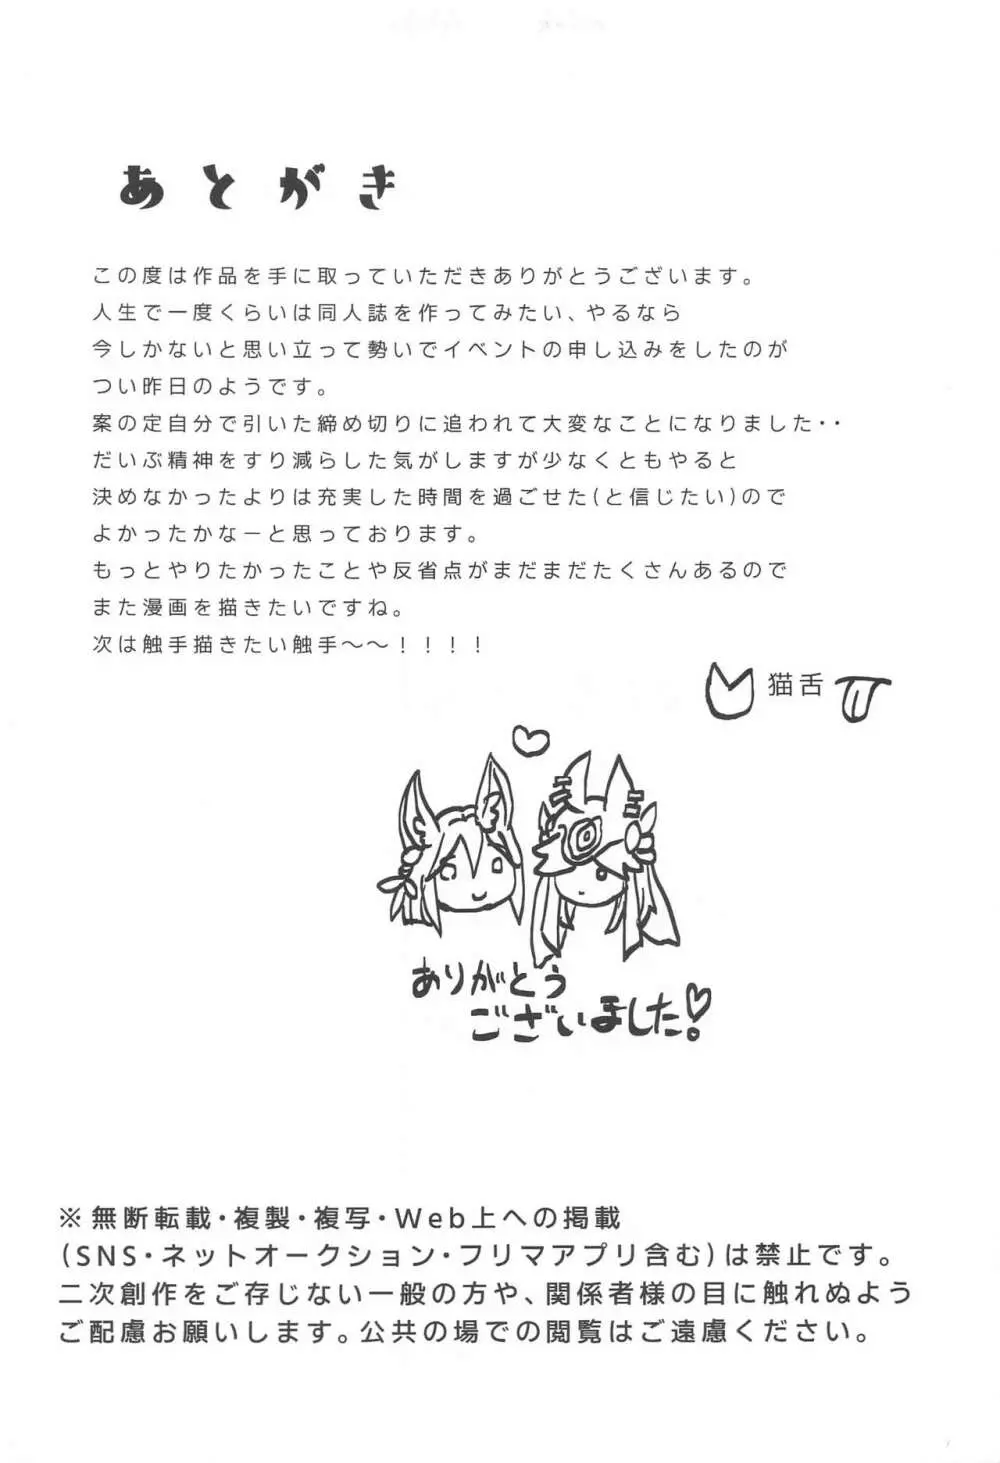 あとがき
この度は作品を手に取っていただきありがとうございます。
人生で一度くらいは同人誌を作ってみたい、やるなら
今しかないと思い立って勢いでイベントの申し込みをしたのが
つい昨日のようです。
案の定自分で引いた締め切りに追われて大変なことになりました・・
だいぶ精神をすり減らした気がしますが少なくともやると
決めなかったよりは充実した時間を過ごせた(と信じたい)ので
よかったかなーと思っております。
もっとやりたかったことや反省点がまだまだたくさんあるので
また漫画を描きたいですね。
次は触手描きたい触手～～！！！！
猫舌
ありがとう
ございました!
※無断転載・複製・複写・Web上への掲載
(SNS・ネットオークション・フリマアプリ含む)は禁止です。
二次創作をご存じない一般の方や、関係者様の目に触れぬよう
ご配慮お願いします。公共の場での閲覧はご遠慮ください。